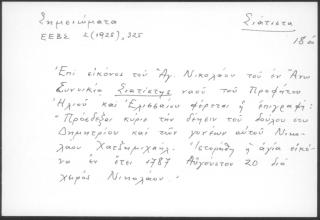 Σημειώματα
Σιάτιστα
ΕΕΒΣ 2(1925), 325
18 α
Ἐπὶ εἰκόνος τοῦ Ἁγ. Νικολάου τοῦ ἐν Ἄνω
Συνοικίᾳ Σιατίστης ναοῦ τοῦ Προφήτου
Ἠλιοῦ καὶ Ἐλισσαίου φέρεται ἡ ἐπιγραφή:
"Πρόσδεξαι κύριε τὴν δέησιν τοῦ δούλου σου
Δημητρίου καὶ τῶν γονέων αὐτοῦ Νικο-
λάου Χατζῆμιχαήλ. Ἱστορήθη ἡ ἁγία εἰκὼ
να ἐν ἔτει 1787 Αὐγούστου 20 διὰ
χειρὸς Νικολάου."